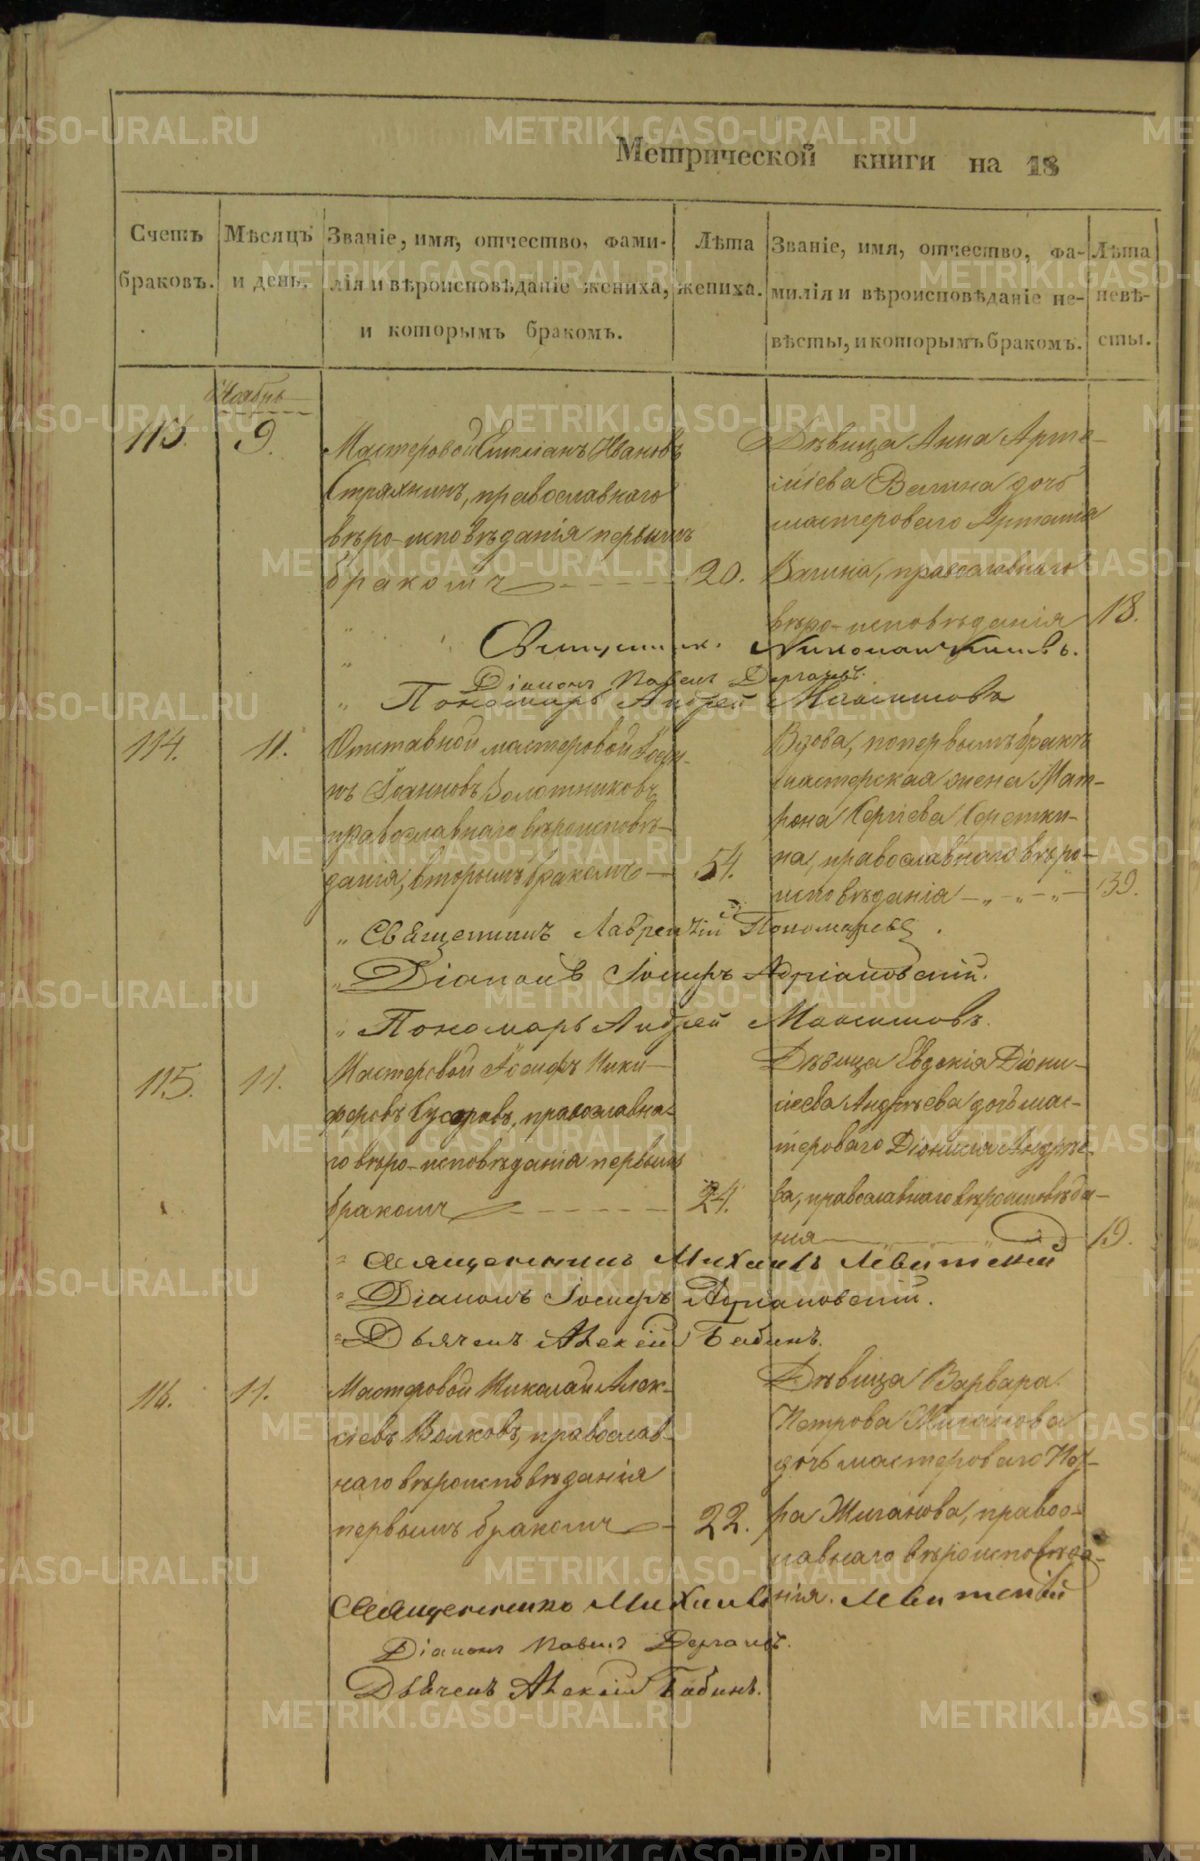 Метрической книги на 18
Счетъ браковъ.
Мѣсяцъ и день.
Званіе, имя, отчество, фами-
лія и вѣроисповѣданіе жениха,
и которымъ бракомъ.
Лѣта жениха.
Званіе, имя, отчество, фа-
милія и вѣроисповѣданіе не-
вѣсты, и которымъ бракомъ.
Лѣта невѣ-
сты.
Ноябрь
113. 9.
Мастеровой Ивановъ
православнаго
вѣро-исповѣданія первымъ
бракомъ 20.
Дѣвица Анна Арте-
міева Вагина дочь
мастероваго Артамія
Вагина, православнаго
вѣро-исповѣданія 18.
Священник.
Діаконъ Павелъ
Пономарь Андрей Максимовъ
114. 11.
Отставной мастеровой Іоси-
фъ Іоанновъ Золотниковъ,
православнаго вѣроисповѣ-
данія, вторымъ бракомъ 54.
Вдова, по первымъ бракѣ
мастерская жена Мат-
рона Сергіева
на, православнаго вѣро-
исповѣданія 39.
Священникъ Лаврентій Пономаревъ.
Діаконъ Іосифъ Адріановскій.
Пономарь Андрей Максимовъ.
115. 11.
Мастеровой Іосифъ Ники-
форовъ православна-
го вѣро-исповѣданія первымъ
бракомъ 24.
Дѣвица Евдокія Діони-
сіева Андреева дочь мас-
тероваго Діонисія Андрее-
ва, православнаго вѣроисповѣда-
нія 19.
Священникъ Михаилъ Левитскій
Діаконъ Іосифъ Адріановскій.
Дьячекъ Алексій Бабинъ.
116. 11.
Мастеровой Николай Алек-
сіевъ Волковъ, православ-
наго вѣроисповѣданія
первымъ бракомъ 22.
Дѣвица Варвара
Петрова Жиганова
дочь мастероваго Пет-
ра Жиганова, правос-
лавнаго вѣроисповѣда-
нія.
Священникъ Михаилъ Левитскій
Діаконъ Павелъ
Дьячекъ Алексій Бабинъ.
METRIKI.GASO-URAL.RU